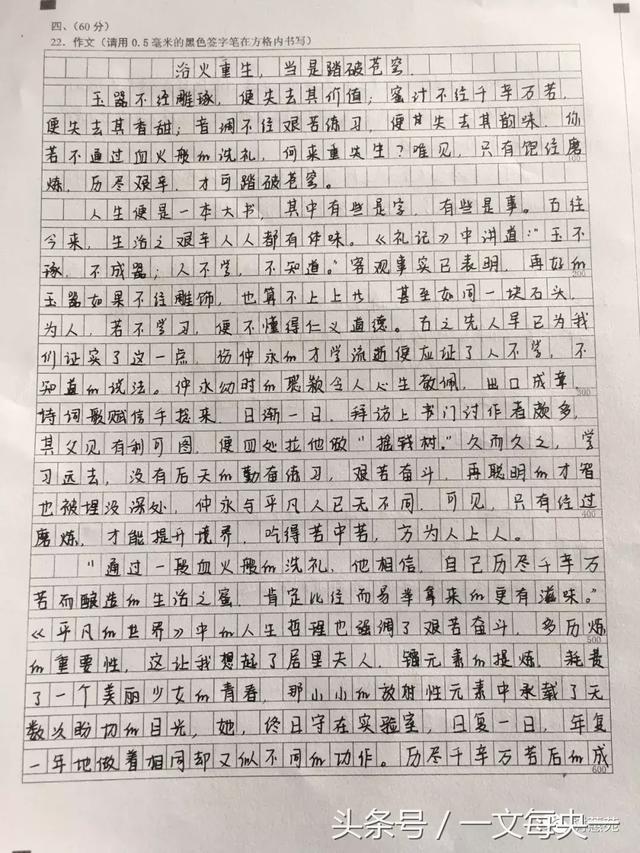 四、（60分）
22．作文（请用0.5毫米的黑色签字笔在方格内书写）
浴火重生，当是踏破苍穹.
玉器不经雕琢，便失去其价值；蜜汁不经千辛万苦，
便失去其香甜；音调不经艰苦练习，便其失去其韵味，你
若不通过血火般的洗礼，何来重失生？唯见，只有饱经磨
100
炼，历尽艰辛，才可踏破苍穹。
人生便是一本大书，其中有些是字，有些是事。古往
今来，生活之艰辛人人都有体味。《礼记》中讲道："玉不
琢，不成器；人不学，不知道。"客观事实已表明，再好的
200
玉器如果不经雕饰，也算不上上品，甚至如同一块石头，
为人，若不学习，便不懂得仁义道德。古之先人早已为我
们证实了这一点，伤仲永的才学流逝便应证了人不学，不
知道的说法。仲永幼时的聪敏令人心生敬佩，出口成章，
300
诗词歌赋信手捻来，日渐一日，拜访上书门讨作者颇多，
其父见有利可图，便四处拉他做"摇钱树。"久而久之，学
习远去，没有后天的勤奋练习，艰苦奋斗，再聪明的才智
也被埋没深处，仲永与平凡人已无不同，可见，只有经过
400
磨炼，才能提升境界，吃得苦中苦，方为人上人。
"通过一段血火般的洗礼，他相信，自己历尽千辛万
苦而酿造的生活之蜜，肯定比轻而易举拿来的更有滋味。"
《平凡的世界》中的人生哲理也强调了艰苦奋斗，多历炼
500
的重要性，这让我想起了居里夫人，镭元素的提炼，耗费
了一个美丽少女的青春，那小小的放射性元素中承载了无
数次盼切的目光，她，终日守在实验室，日复一日，年复
一年地做着相同却又似不同的功作。历尽千辛万苦后的成
600
头条号／一文每夬